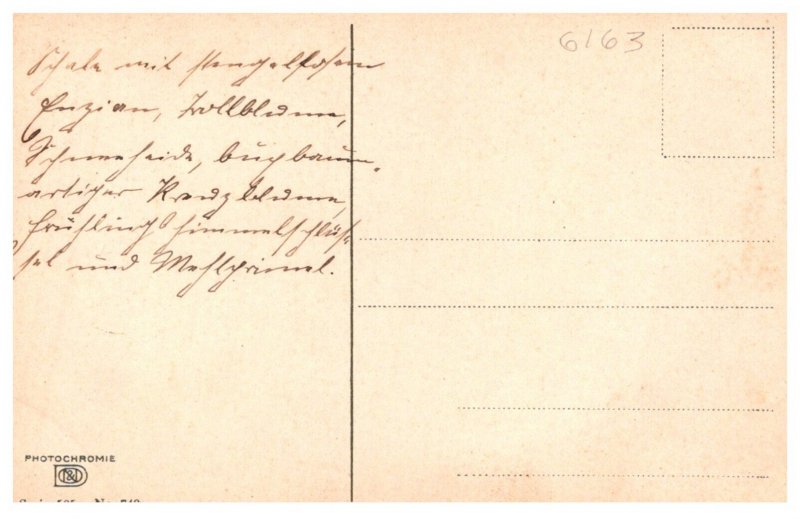 6163
Schale mit stengellosem
Enzian, Trollblume,
Schneeheide, buxbaum-
artiger Kreuzblume,
Frühlingshimmelschlüs-
sel und Mehlprimel.
PHOTOCHROMIE
D&D